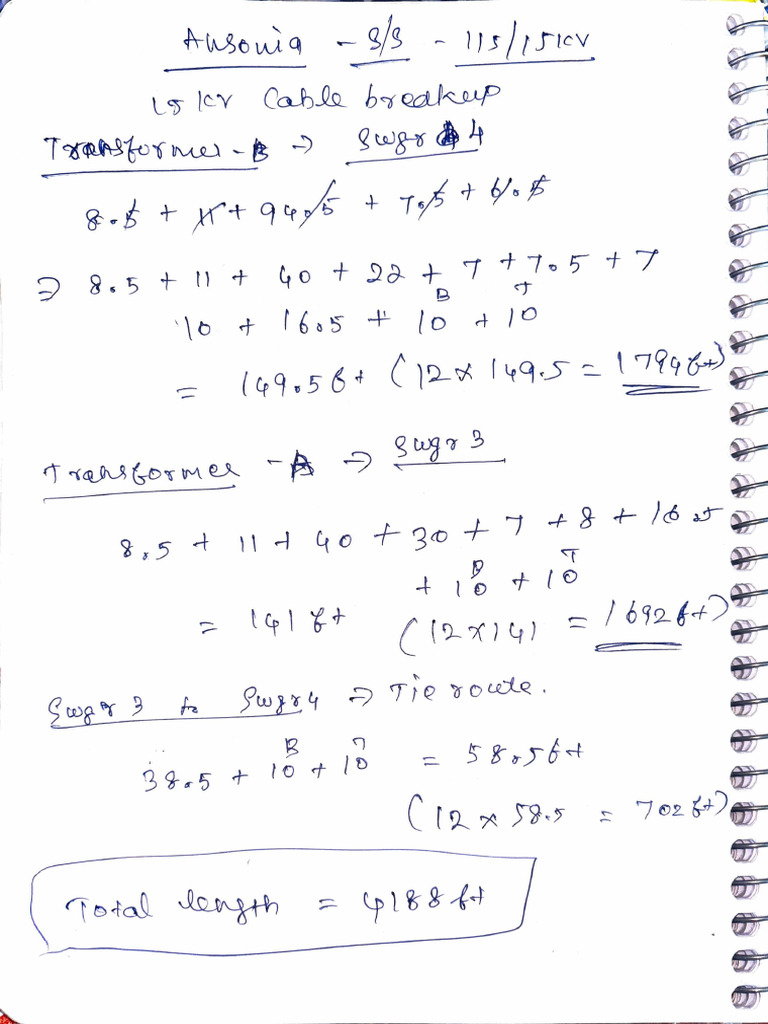 Ansonia - S/S - 115/15KV
15 KV Cable breakup
Transformer - B → Swgr 4
8.5 + 11 + 94.5 + 7.5 + 6.5
⇒ 8.5 + 11 + 40 + 22 + 7 + 7.5 + 7
B T
10 + 16.5 + 10 + 10
= 149.5 ft (12 x 149.5 = 1794 ft)
Transformer - A → Swgr 3
8.5 + 11 + 40 + 30 + 7 + 8 + 16.5
B T
+ 10 + 10
= 141 ft (12 x 141 = 1692 ft)
Swgr 3 to Swgr 4 ⇒ Tie route.
B T
38.5 + 10 + 10 = 58.5 ft
(12 x 58.5 = 702 ft)
Total length = 4188 ft